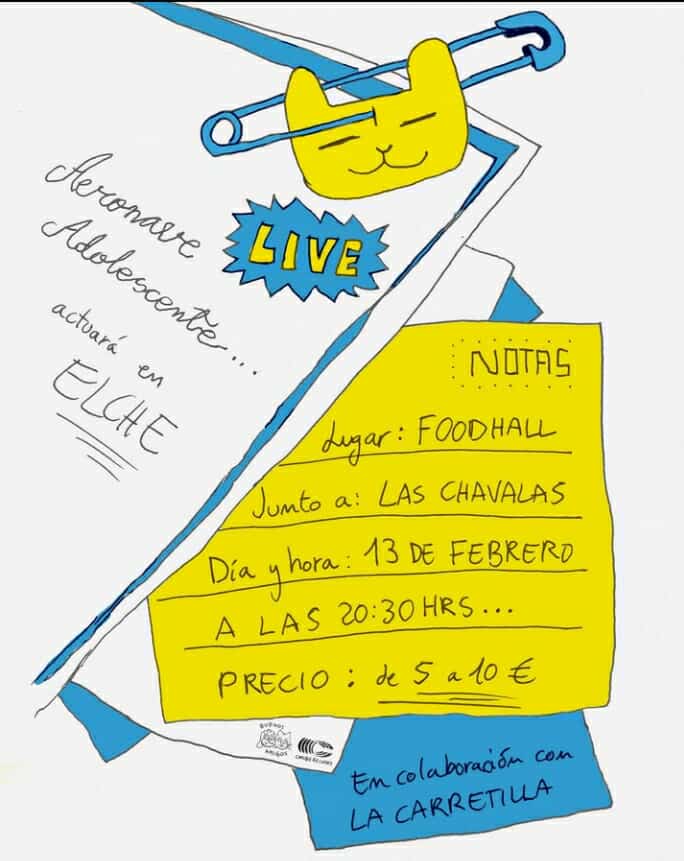 Aeronave
Adolescente...
actuará en
ELCHE
LIVE
NOTAS
Lugar: FOODHALL
Junto a: LAS CHAVALAS
Día y hora: 13 DE FEBRERO
A LAS 20:30 HRS...
PRECIO: de 5 a 10 €
BUENOS
AMIGOS
En colaboración con
LA CARRETILLA